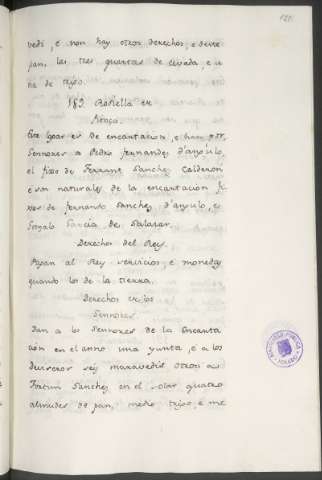 121.
vedi, e non hay otros derechos, e derre
pan, las tres quartas de cevada, e u
na de trigo.
189 Rañella en
Este logar es de encartacion, e han por
Sennores a Pedro Fernandes d'angulo,
el fixo de Ferrant Sanches Calderon
e son naturales de la encartacion fi
xos de fernando Sanches d'angulo, e
Gonzalo Garcia de Salazar.
Derechos del Rey.
Pagan al Rey servicios, e monedas
quando los de la tierra.
Derechos de los
Sennores
Dan a los Sennores de la Encarta
cion en el anno una yunta, e a los
deviseros seis maravedis otros a
Fortun Sanches en el solar quatro
almudes de pan, medio trigo, e me